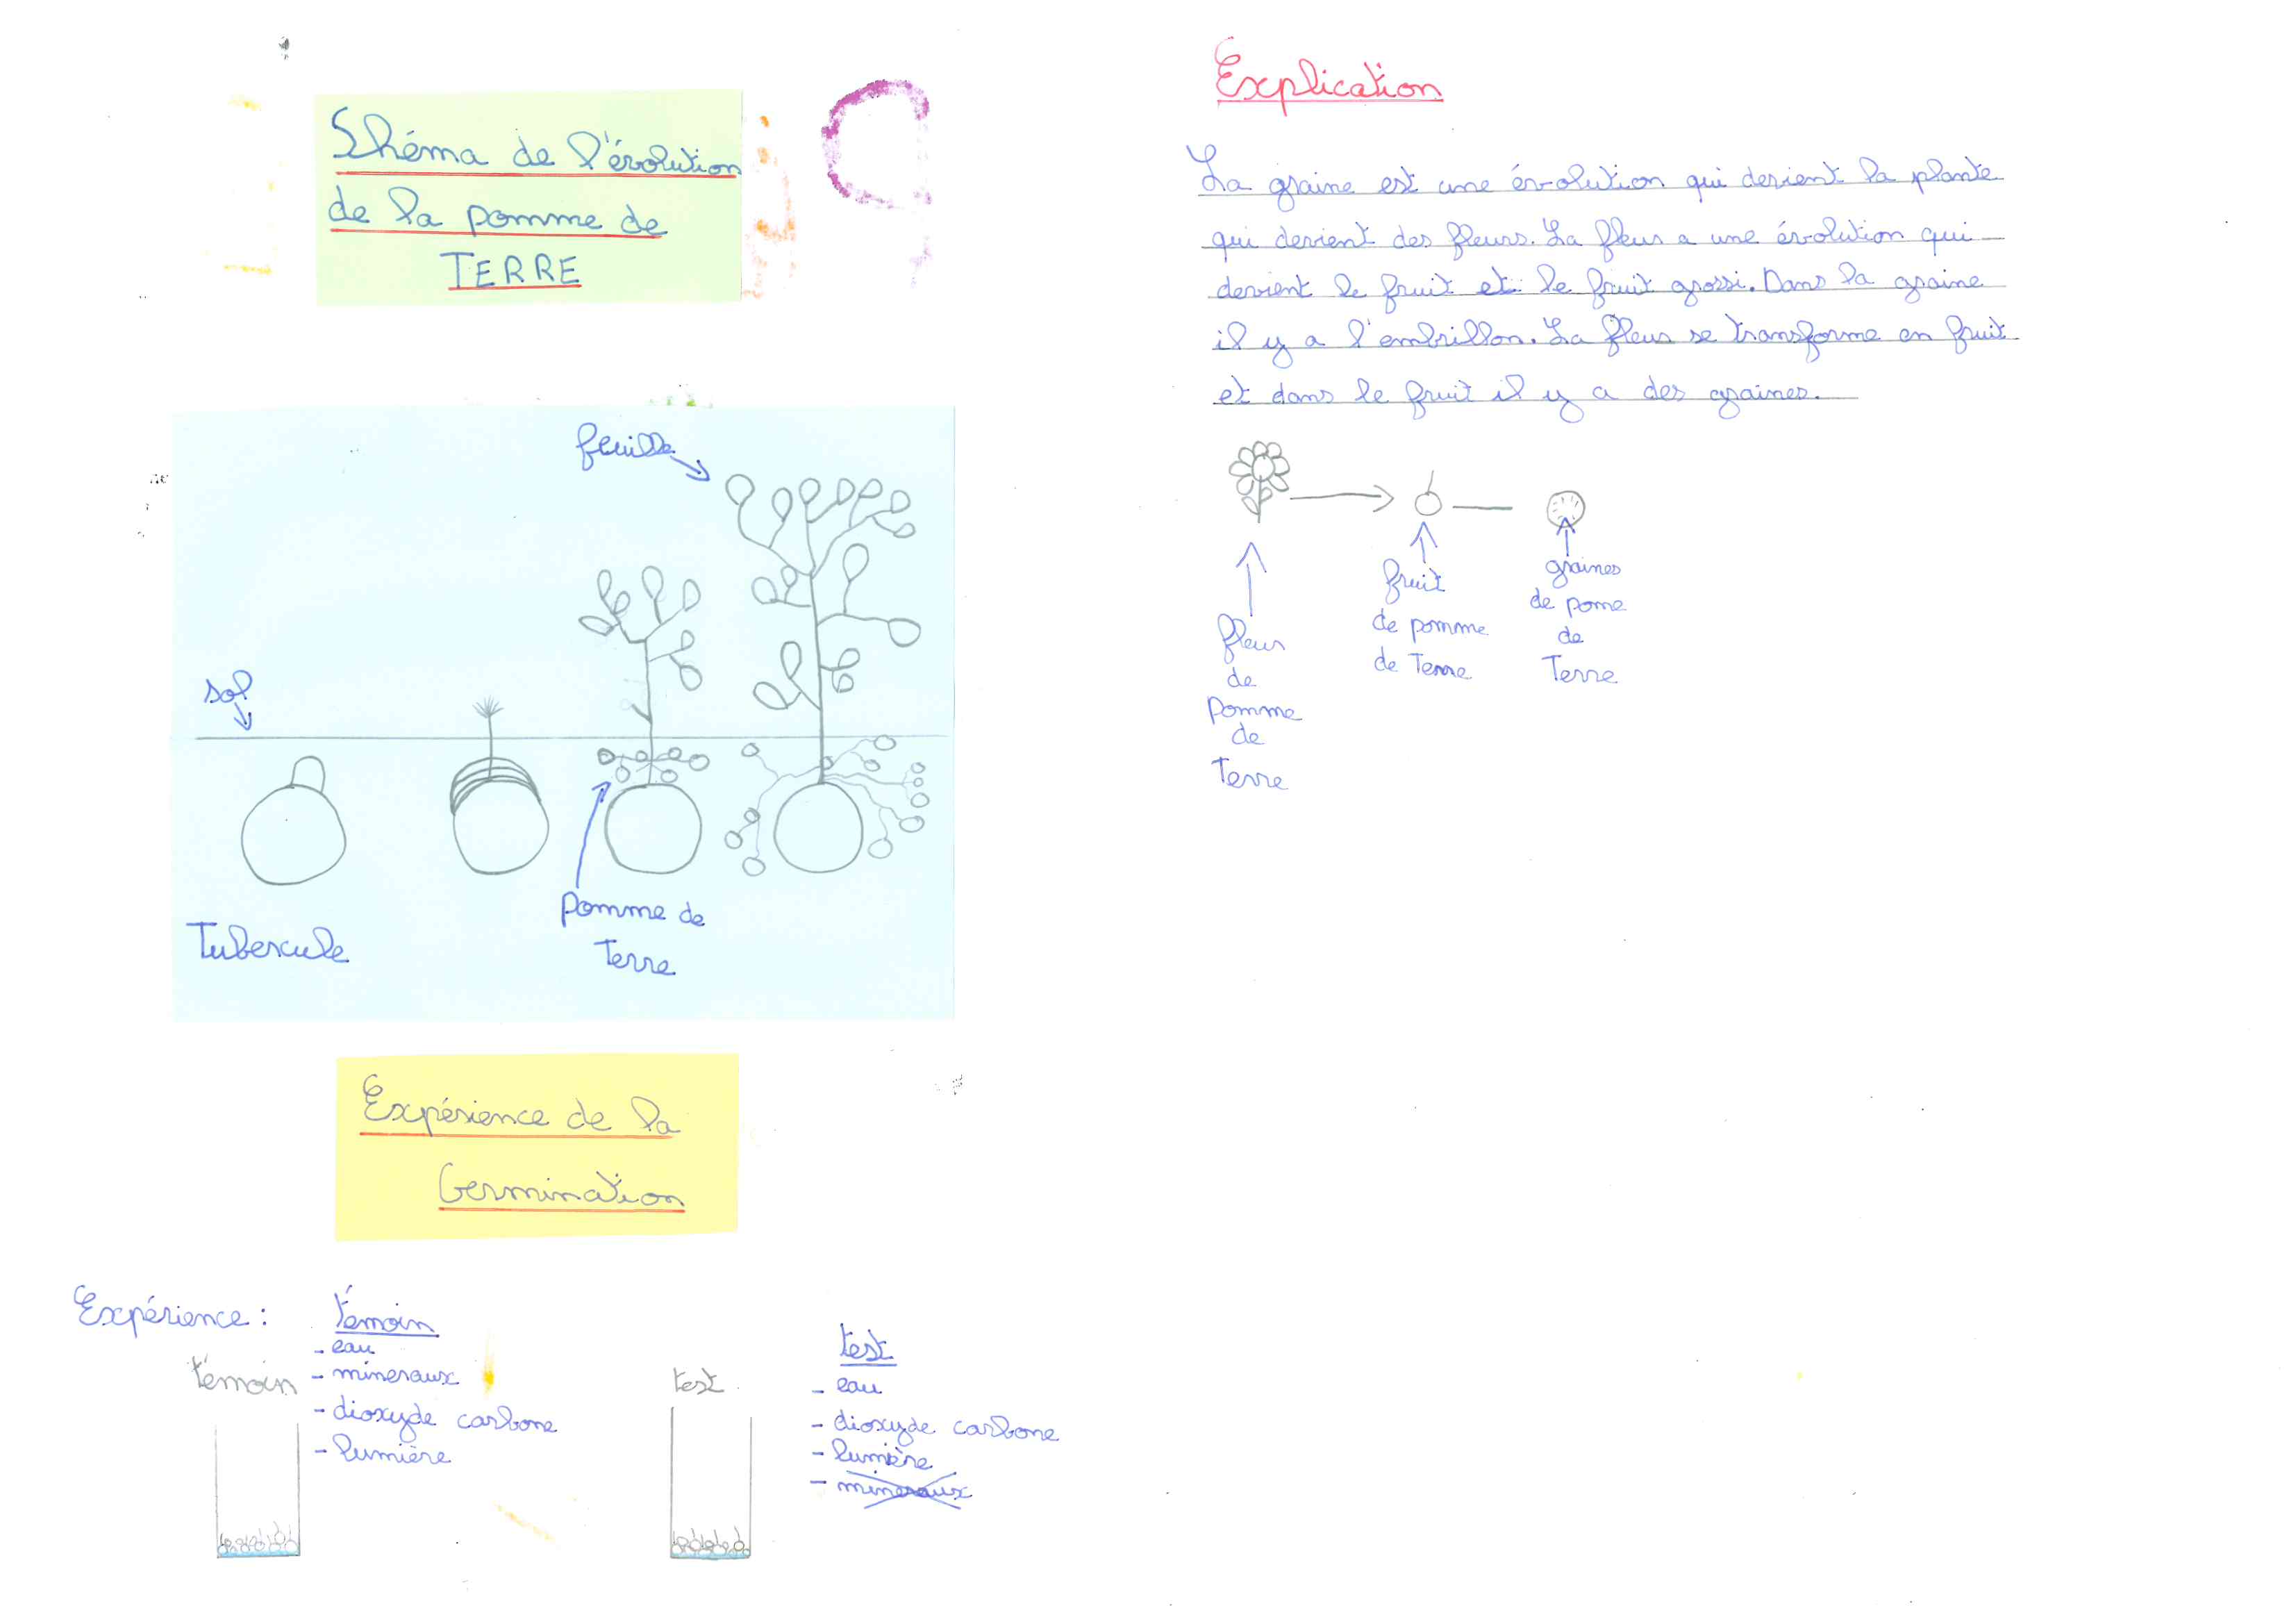 Shéma de l'évolution
de la pomme de
TERRE
feuille
sol
Tubercule
pomme de
Terre
Expérience de la
Germination
Expérience :
témoin
- eau
- mineraux
- dioxyde carbone
- lumière
témoin
test
test
- eau
- dioxyde carbone
- lumière
- mineraux
Explication
La graine est une évolution qui devient la plante
qui devient des fleurs. La fleur a une évolution qui
devient le fruit et le fruit grossi. Dans la graine
il y a l'embrillon. La fleur se transforme en fruit
et dans le fruit il y a des graines.
fleur
de
Pomme
de
Terre
fruit
de pomme
de Terre
graines
de pome
de
Terre